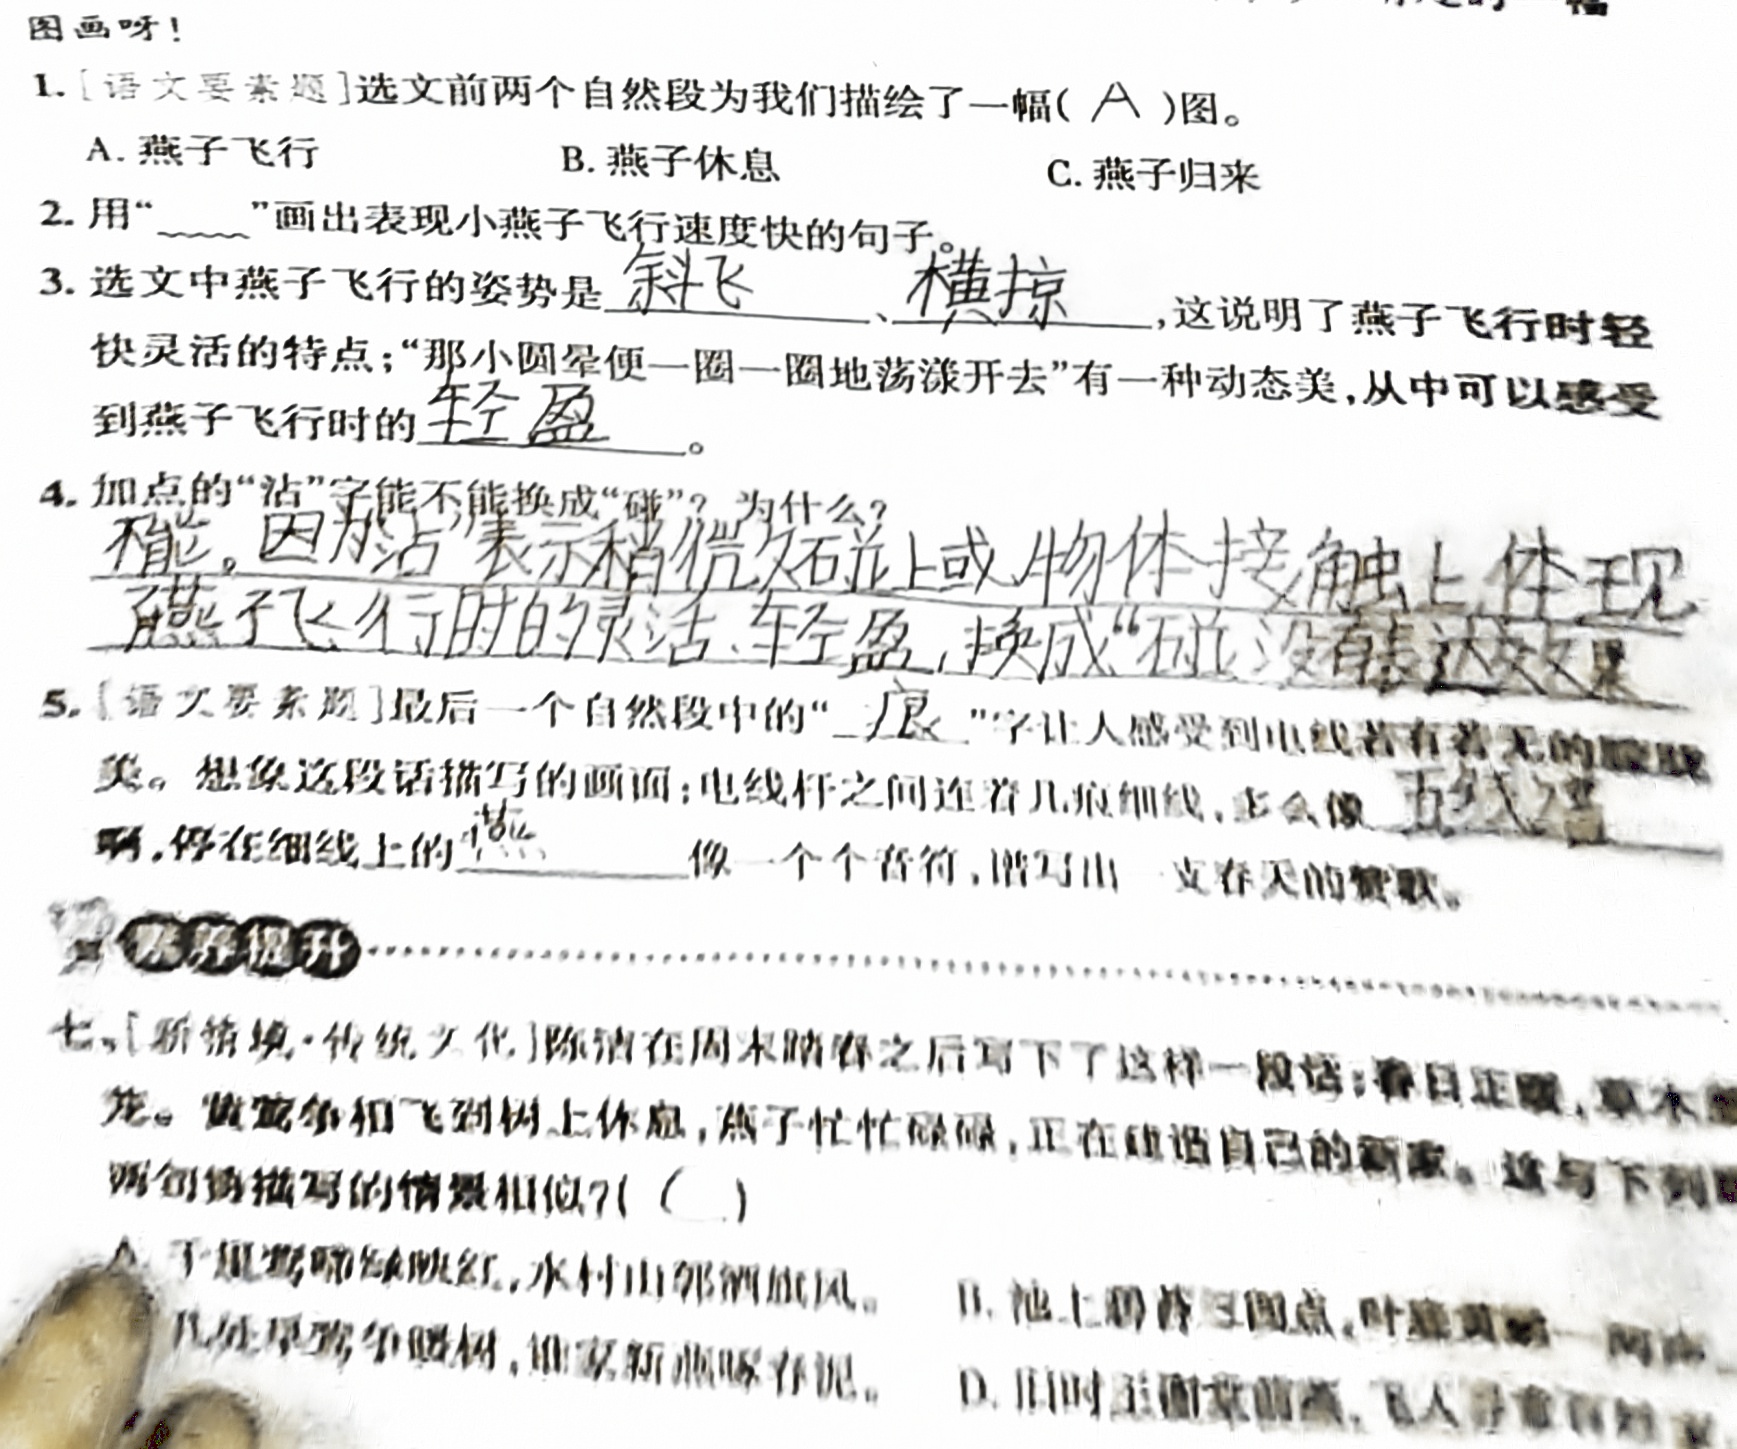 图画呀！
1. [语文要素题]选文前两个自然段为我们描绘了一幅( A )图。
A. 燕子飞行 B. 燕子休息 C. 燕子归来
2. 用“﹏﹏”画出表现小燕子飞行速度快的句子。
3. 选文中燕子飞行的姿势是斜飞、横掠,这说明了燕子飞行时轻
快灵活的特点;“那小圆晕便一圈一圈地荡漾开去”有一种动态美,从中可以感受
到燕子飞行时的轻盈。
4. 加点的“沾”字能不能换成“碰”？为什么？
不能。因为“沾”表示稍微碰上或物体接触上,体现
燕子飞行时的灵活、轻盈,换成“碰”没有表达效果
5. [语文要素题]最后一个自然段中的“痕”字让人感受到电线若有若无的朦胧
美。想象这段话描写的画面:电线杆之间连着几痕细线,多么像五线谱
啊,停在细线上的燕像一个个音符,谱写出一支春天的赞歌。
素养提升
七、[新情境·传统文化]陈洁在周末踏春之后写下了这样一段话:春日正暖,草木
茏。黄莺争相飞到树上休息,燕子忙忙碌碌,正在建造自己的新家。这与下列
两句诗描写的情景相似?( )
A. 千里莺啼绿映红,水村山郭酒旗风。 B. 池上碧苔三四点,叶底黄鹂一两声
几处早莺争暖树,谁家新燕啄春泥。 D. 旧时王谢堂前燕,飞入寻常百姓家